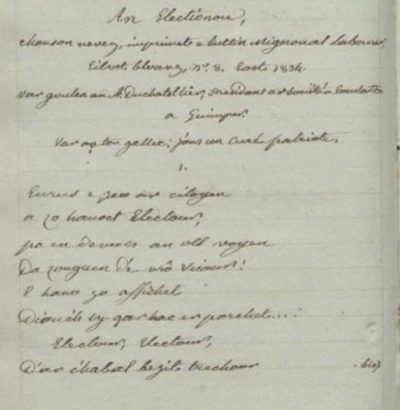 An Electionou,
chanson nevez, imprimet e bultin Mignonal Labourer,
Eilvet bloavez, n.° 8. Eost 1834.
Var goulen an A. Duchatellier, president ar société a Emulation
a Quimper.
Var an ton gallec: j'ons un curé patriote,
1.
Eurus e peo ar citoyen
a zo hanvet Electour,
pa en deveus an
Da zouguen de vro
E hano zo affichet
har er porchet...:
Electour, Electour,
D'ar chabal trechour bis)